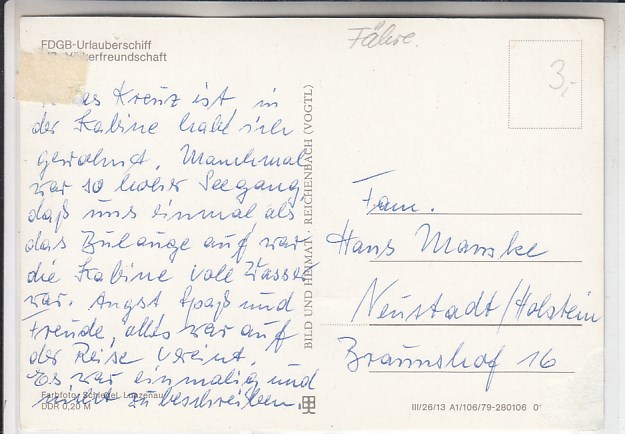 FDGB-Urlauberschiff
Völkerfreundschaft
Fähre.
3,-
Kreuz ist, in
der Kabine habe ich
gewohnt. Manchmal
war so hoher Seegang,
daß uns einmal als
das Bulauge auf war
die Kabine voll Wasser
war. Angst Spaß und
Freude, alles war auf
der Reise vereint.
Es war einmalig und
nicht zu beschreiben.
Farbfoto: Schlegel,
DDR 0,20 M
BILD UND HEIMAT · REICHENBACH (VOGTL)
Fam.
Hans Manske
Neustadt/Holstein
Braunshof 16
III/26/13 A1/106/79-280106